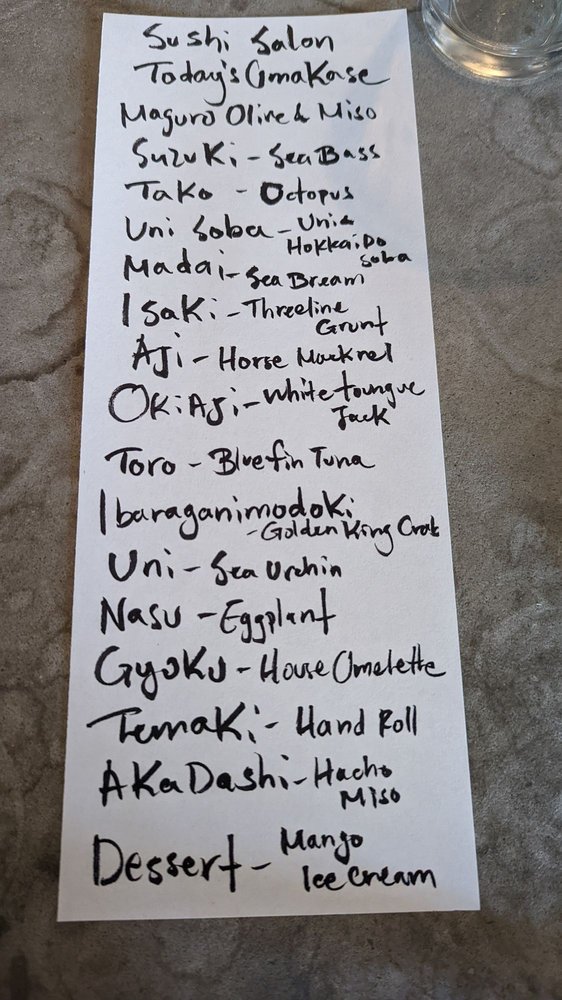 Sushi Salon
Today's Omakase
Maguro Olive & Miso
Suzuki - Sea Bass
Tako - Octopus
Uni Soba - Uni &
Hokkaido
Soba
Madai - Sea Bream
Isaki - Threeline
Grunt
Aji - Horse Mackrel
OkiAji - White toungue
Jack
Toro - Bluefin Tuna
Ibaraganimodoki
- Golden King Crab
Uni - Sea Urchin
Nasu - Eggplant
Gyoku - House Omelette
Temaki - Hand Roll
AKaDashi - Hacho
Miso
Dessert - Mango
Ice Cream